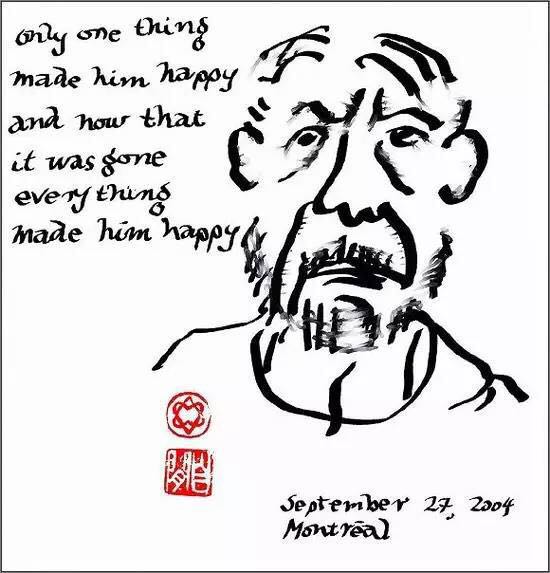 only one thing
made him happy
and now that
it was gone
every thing
made him happy
September 27, 2004
Montréal